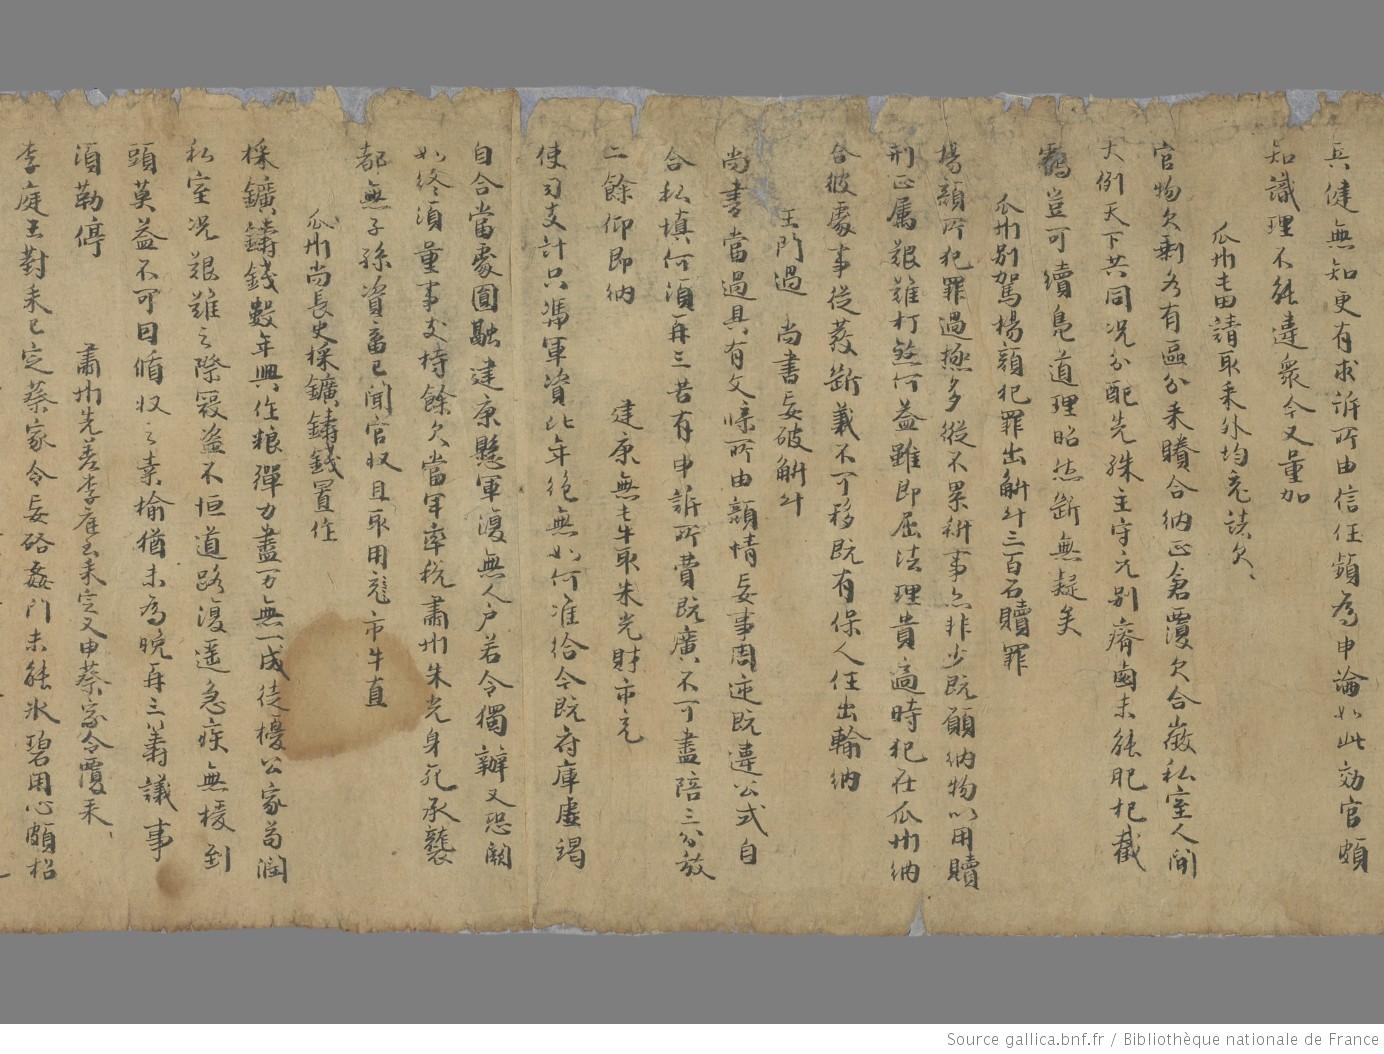 兵健無知更有求訴所由信任頻為申論如此効官頗
知識理不能違衆今又量加
瓜州屯田請取耒外均充諸欠
官物欠剩各有區分耒贖合納正倉覆欠合徵私室人間
大例天下共同況分配先殊主守元別瘠鹵未能肥杞截
鶴豈可續鳧道理昭然斷無疑矣
瓜州別駕楊顏犯罪出斛斗三百石贖罪
楊顏所犯罪過極多縱不累耕事亦非少既願納物以用贖
刑正属艱難打煞何益雖即屈法理貴適時犯在瓜州納
合彼處事從發斷義不可移既有保人任出輸納
玉門過尚書妄破斛斗
尚書當過具有文牒所由顏情妄事周迊既違公式自
合私填何須再三苦有申訴所費既廣不可盡陪三分放
二餘仰即納
建康無屯牛取朱光財市充
使司支計只憑軍資比年絕無如何准給今既府庫虛竭
自合當處圓融建康懸軍復無人户若令獨辦又恐闕
如終須量事支持餘欠當軍率税肅州朱光身死承襲
都無子孫資畜已聞官收且取用充市牛直
瓜州尚長史採鑛鑄錢置作
採鑛鑄錢數年興作粮殫力盡万無一成徒擾公家苟潤
私室況艱難之際寇盗不恒道路復遥急疾無援到
頭莫益不可因循收之桒榆猶未為晚再三筹議事
須勒停
肅州先差李庭玉耒定又申蔡家令覆耒
李庭玉對耒已定蔡家令妄啓姦門未能氷碧用心頗招